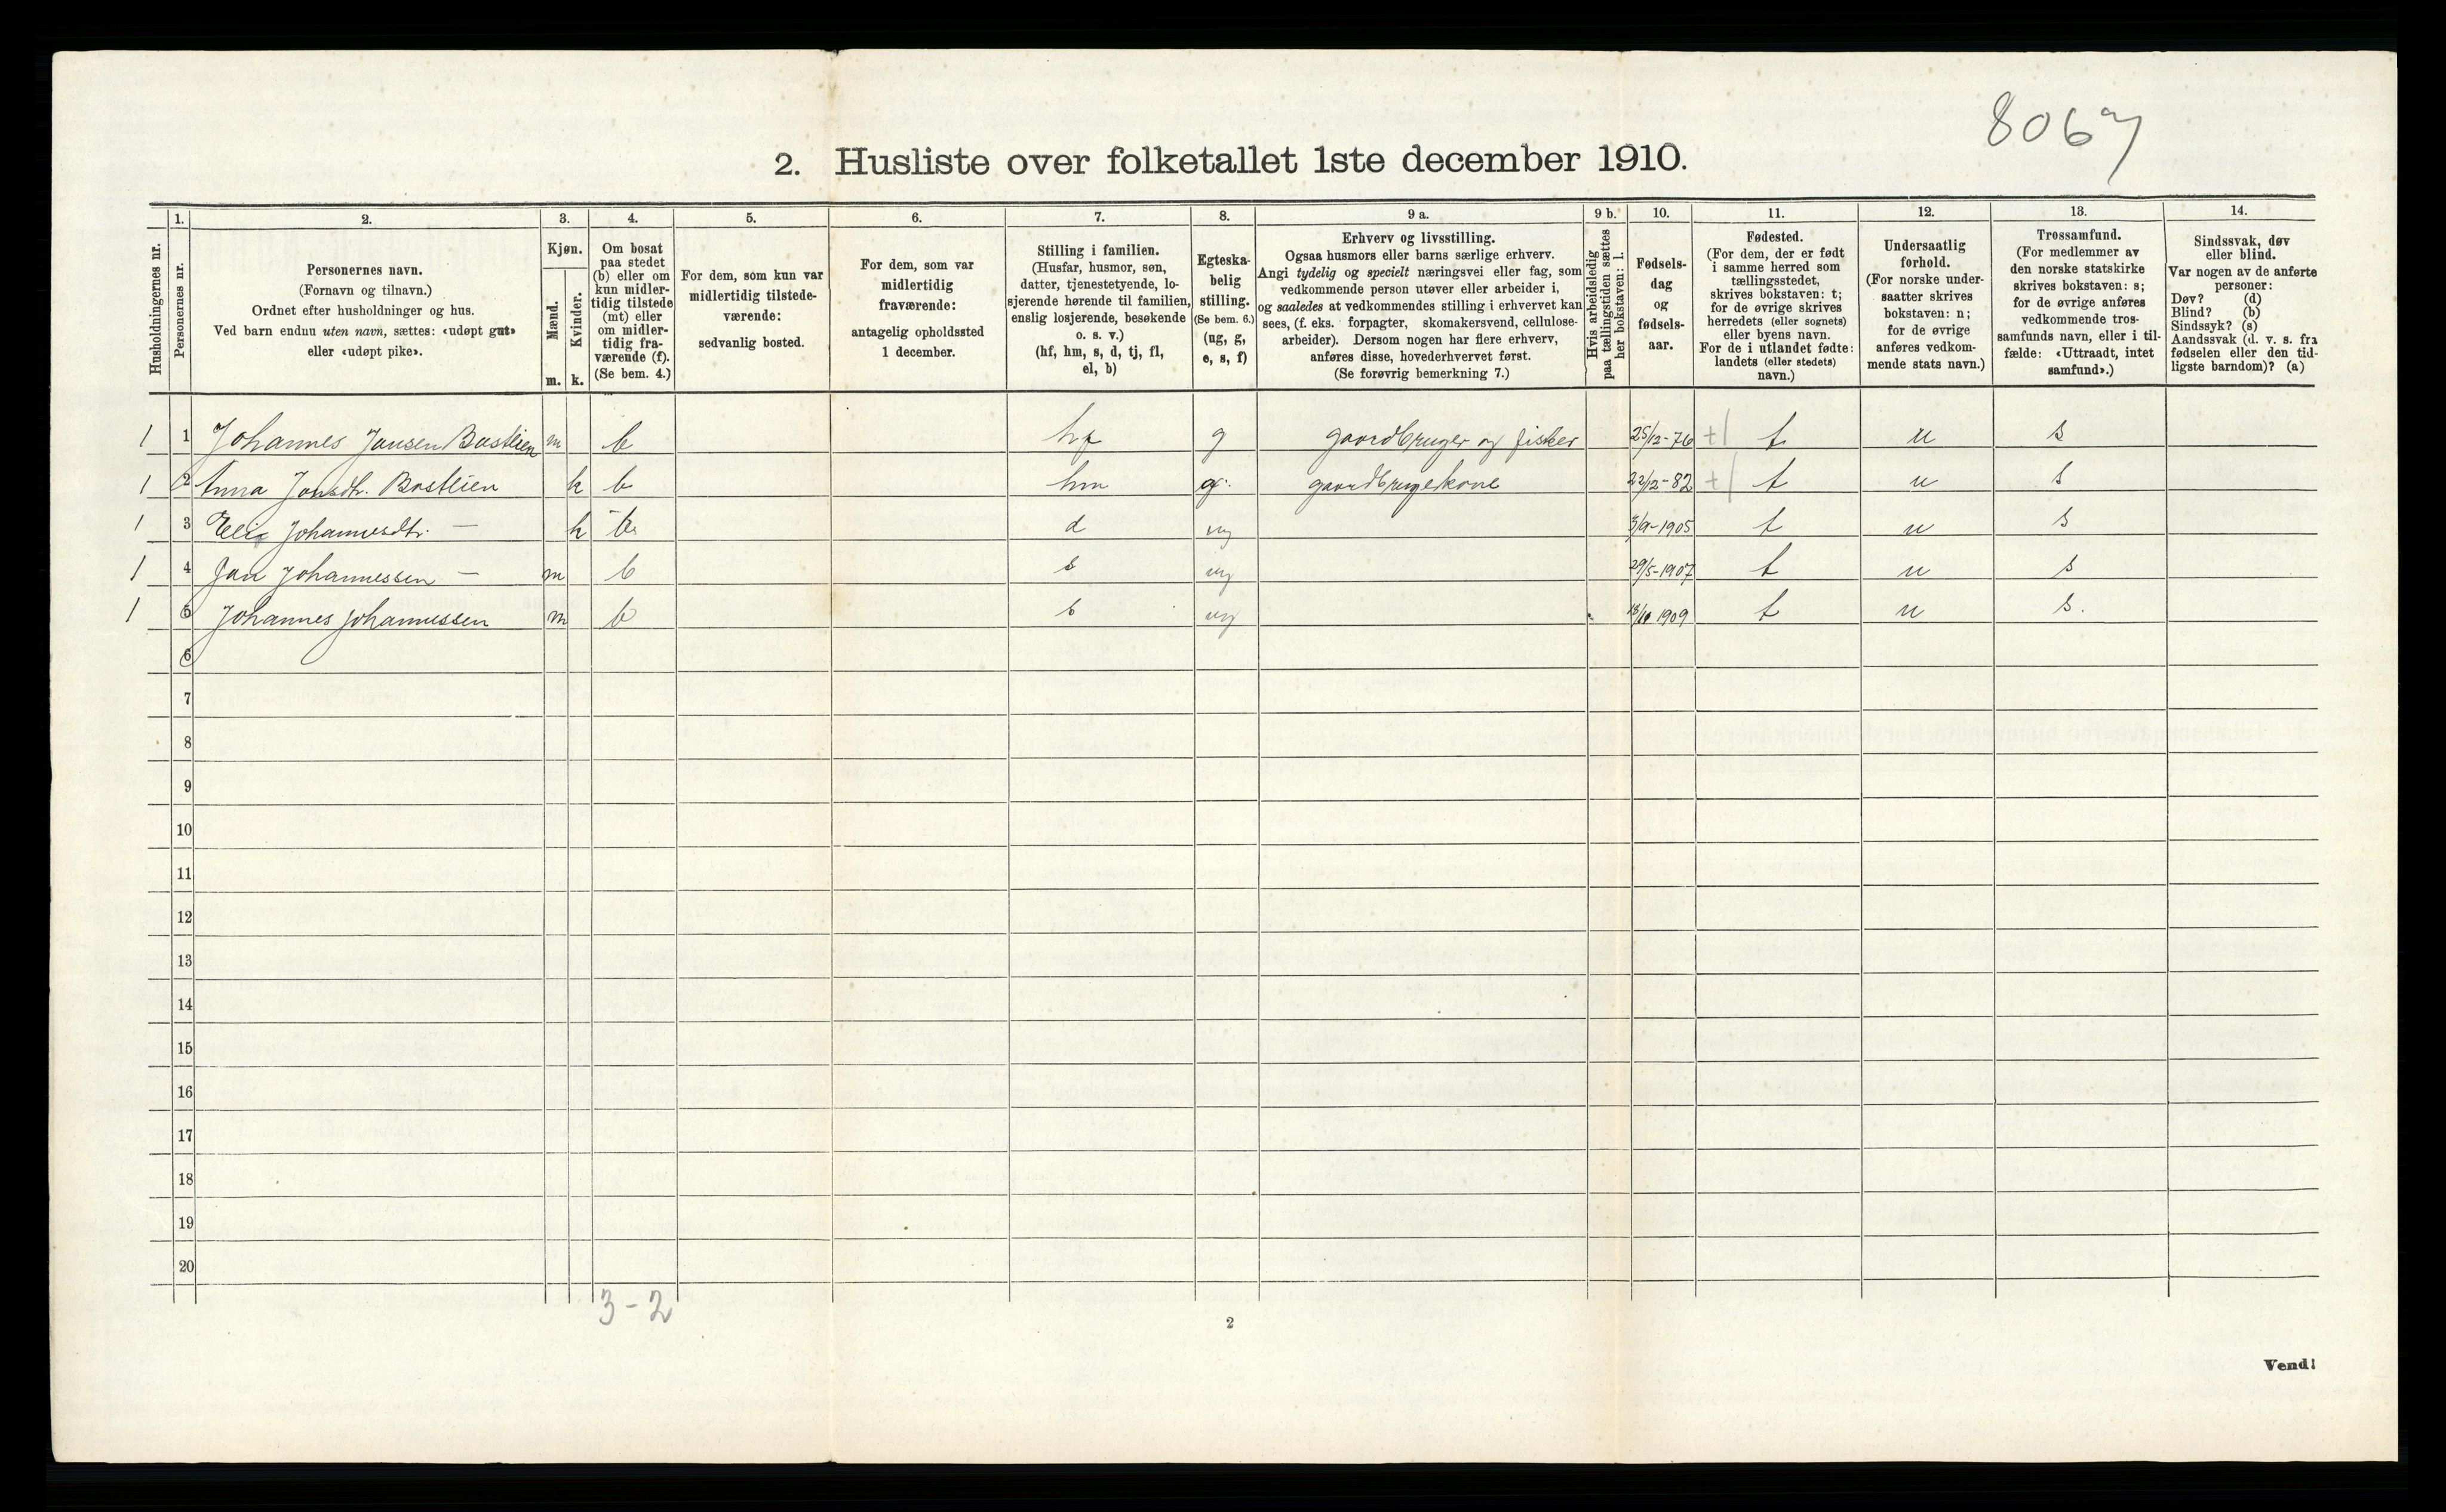 8067
2. Husliste over folketallet 1ste december 1910.
Husholdningernes nr.
1.
Personernes nr.
2.
Personernes navn.
(Fornavn og tilnavn.)
Ordnet efter husholdninger og hus.
Ved barn endnu uten navn, sættes: «udøpt gut»
eller «udøpt pike».
3.
Kjøn.
Mænd.
Kvinder.
m. k.
4.
Om bosat
paa stedet
(b) eller om
kun midler-
tidig tilstede
(mt) eller
om midler-
tidig fra-
værende (f).
(Se bem. 4.)
5.
For dem, som kun var
midlertidig tilstede-
værende:
sedvanlig bosted.
6.
For dem, som var
midlertidig
fraværende:
antagelig opholdssted
1 december.
7.
Stilling i familien.
(Husfar, husmor, søn,
datter, tjenestetyende, lo-
sjerende hørende til familien,
enslig losjerende, besøkende
o. s. v.)
(hf, hm, s, d, tj, fl,
el, b)
8.
Egteska-
belig
stilling.
(Se bem. 6.)
(ug, g,
e, s, f)
9 a.
Erhverv og livsstilling.
Ogsaa husmors eller barns særlige erhverv.
Angi tydelig og specielt næringsvei eller fag, som
vedkommende person utøver eller arbeider i,
og saaledes at vedkommendes stilling i erhvervet kan
sees, (f. eks. forpagter, skomakersvend, cellulose-
arbeider). Dersom nogen har flere erhverv,
anføres disse, hovederhvervet først.
(Se forøvrig bemerkning 7.)
9 b.
Hvis arbeidsledig
paa tællingstiden sættes
her bokstaven: l.
10.
Fødsels-
dag
og
fødsels-
aar.
11.
Fødested.
(For dem, der er født
i samme herred som
tællingsstedet,
skrives bokstaven: t;
for de øvrige skrives
herredets (eller sognets)
eller byens navn.
For de i utlandet fødte:
landets (eller stedets)
navn.)
12.
Undersaatlig
forhold.
(For norske under-
saatter skrives
bokstaven: n;
for de øvrige
anføres vedkom-
mende stats navn.)
13.
Trossamfund.
(For medlemmer av
den norske statskirke
skrives bokstaven: s;
for de øvrige anføres
vedkommende tros-
samfunds navn, eller i til-
fælde: «Uttraadt, intet
samfund».)
14.
Sindssvak, døv
eller blind.
Var nogen av de anførte
personer:
Døv? (d)
Blind? (b)
Sindssyk? (s)
Aandssvak (d. v. s. fra
fødselen eller den tid-
ligste barndom)? (a)
1 1 Johannes Jonsen Bostlien m b hf g gaardbruger og fisker 25/12-76 +/ t n s
1 2 Anna Jonsdt. Bostlien k b hm g. gaardbrugerkone 22/12-82 +/ t n s
1 3 Johannesdtr. — k b d ug 3/9-1905 t n s
1 4 Jon Johannessen — m b s ug 29/5-1907 t n s
1 5 Johannes Johannessen m b s ug 1909 t n s.
6
7
8
9
10
11
12
13
14
15
16
17
18
19
20
3-2
2
Vend!